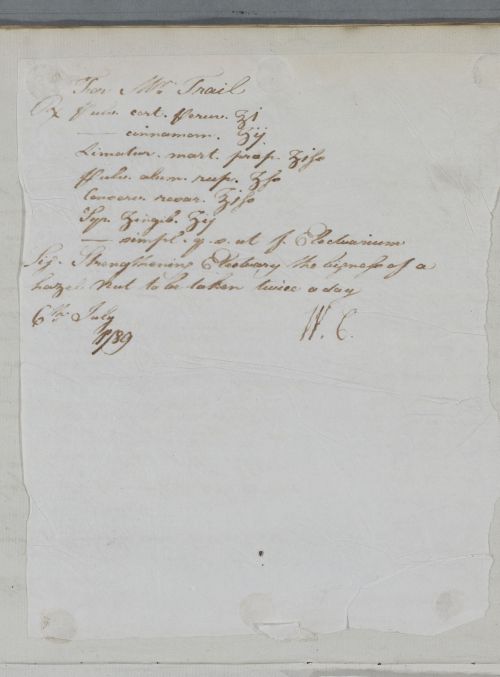 For Mr. Trail
Rx Pulv. cort. Peruv. ℥i
—— cinnamom. ʒij
Limatur. mart. prep. ʒiſs
Pulv. alum. rup. ʒſs
Conserv. rosar. ℥iſs
Syr. Zingib. ℥ij
—— simpl. q. s. ut f. Electuarium
Sig. Strengthening Electuary the bigness of a
hazel Nut to be taken twice a day
6th. July
1789 W. C.